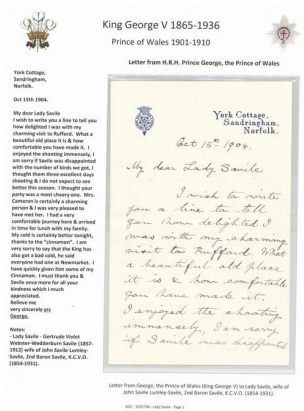 King George V 1865-1936
Prince of Wales 1901-1910
Letter from H.R.H. Prince George, the Prince of Wales
York Cottage,
Sandringham,
Norfolk.
Oct 15th 1904.
My dear Lady Savile
I wish to write you a line to tell you
how delighted I was with my
charming visit to Rufford. What a
beautiful old place it is & how
comfortable you have made it. I
enjoyed the shooting immensely, I
am sorry if Savile was disappointed
with the number of birds we got, I
thought them three excellent days
shooting & I do not expect to see
better this season. I thought your
party was a most cheery one. Mrs.
Cameron is certainly a charming
person & I was very pleased to
have met her. I had a very
comfortable journey here & arrived
in time for lunch with my family.
My cold is certainly better tonight,
thanks to the "cinnamon". I am
very sorry to say that the King has
also got a bad cold, he said
everyone had one at Newmarket. I
have quickly given him some of my
Cinnamon. I must thank you &
Savile once more for all your
kindness which I much
appreciated.
Believe me
very sincerely yrs
George.
Notes:
- Lady Savile - Gertrude Violet
Webster-Wedderburn Savile (1857-
1912) wife of John Savile Lumley-
Savile, 2nd Baron Savile, K.C.V.O.
(1854-1931).
York Cottage,
Sandringham,
Norfolk.
Oct 15th 1904.
My dear Lady Savile
I wish to write
you a line to tell
you how delighted I
was with my charming
visit to Rufford. What
a beautiful old place
it is & how comfortable
you have made it.
I enjoyed the shooting
immensely, I am sorry
if Savile was disappointed
Letter from George, the Prince of Wales (King George V) to Lady Savile, wife of
John Savile Lumley-Savile, 2nd Baron Savile, K.C.V.O. (1854-1931).